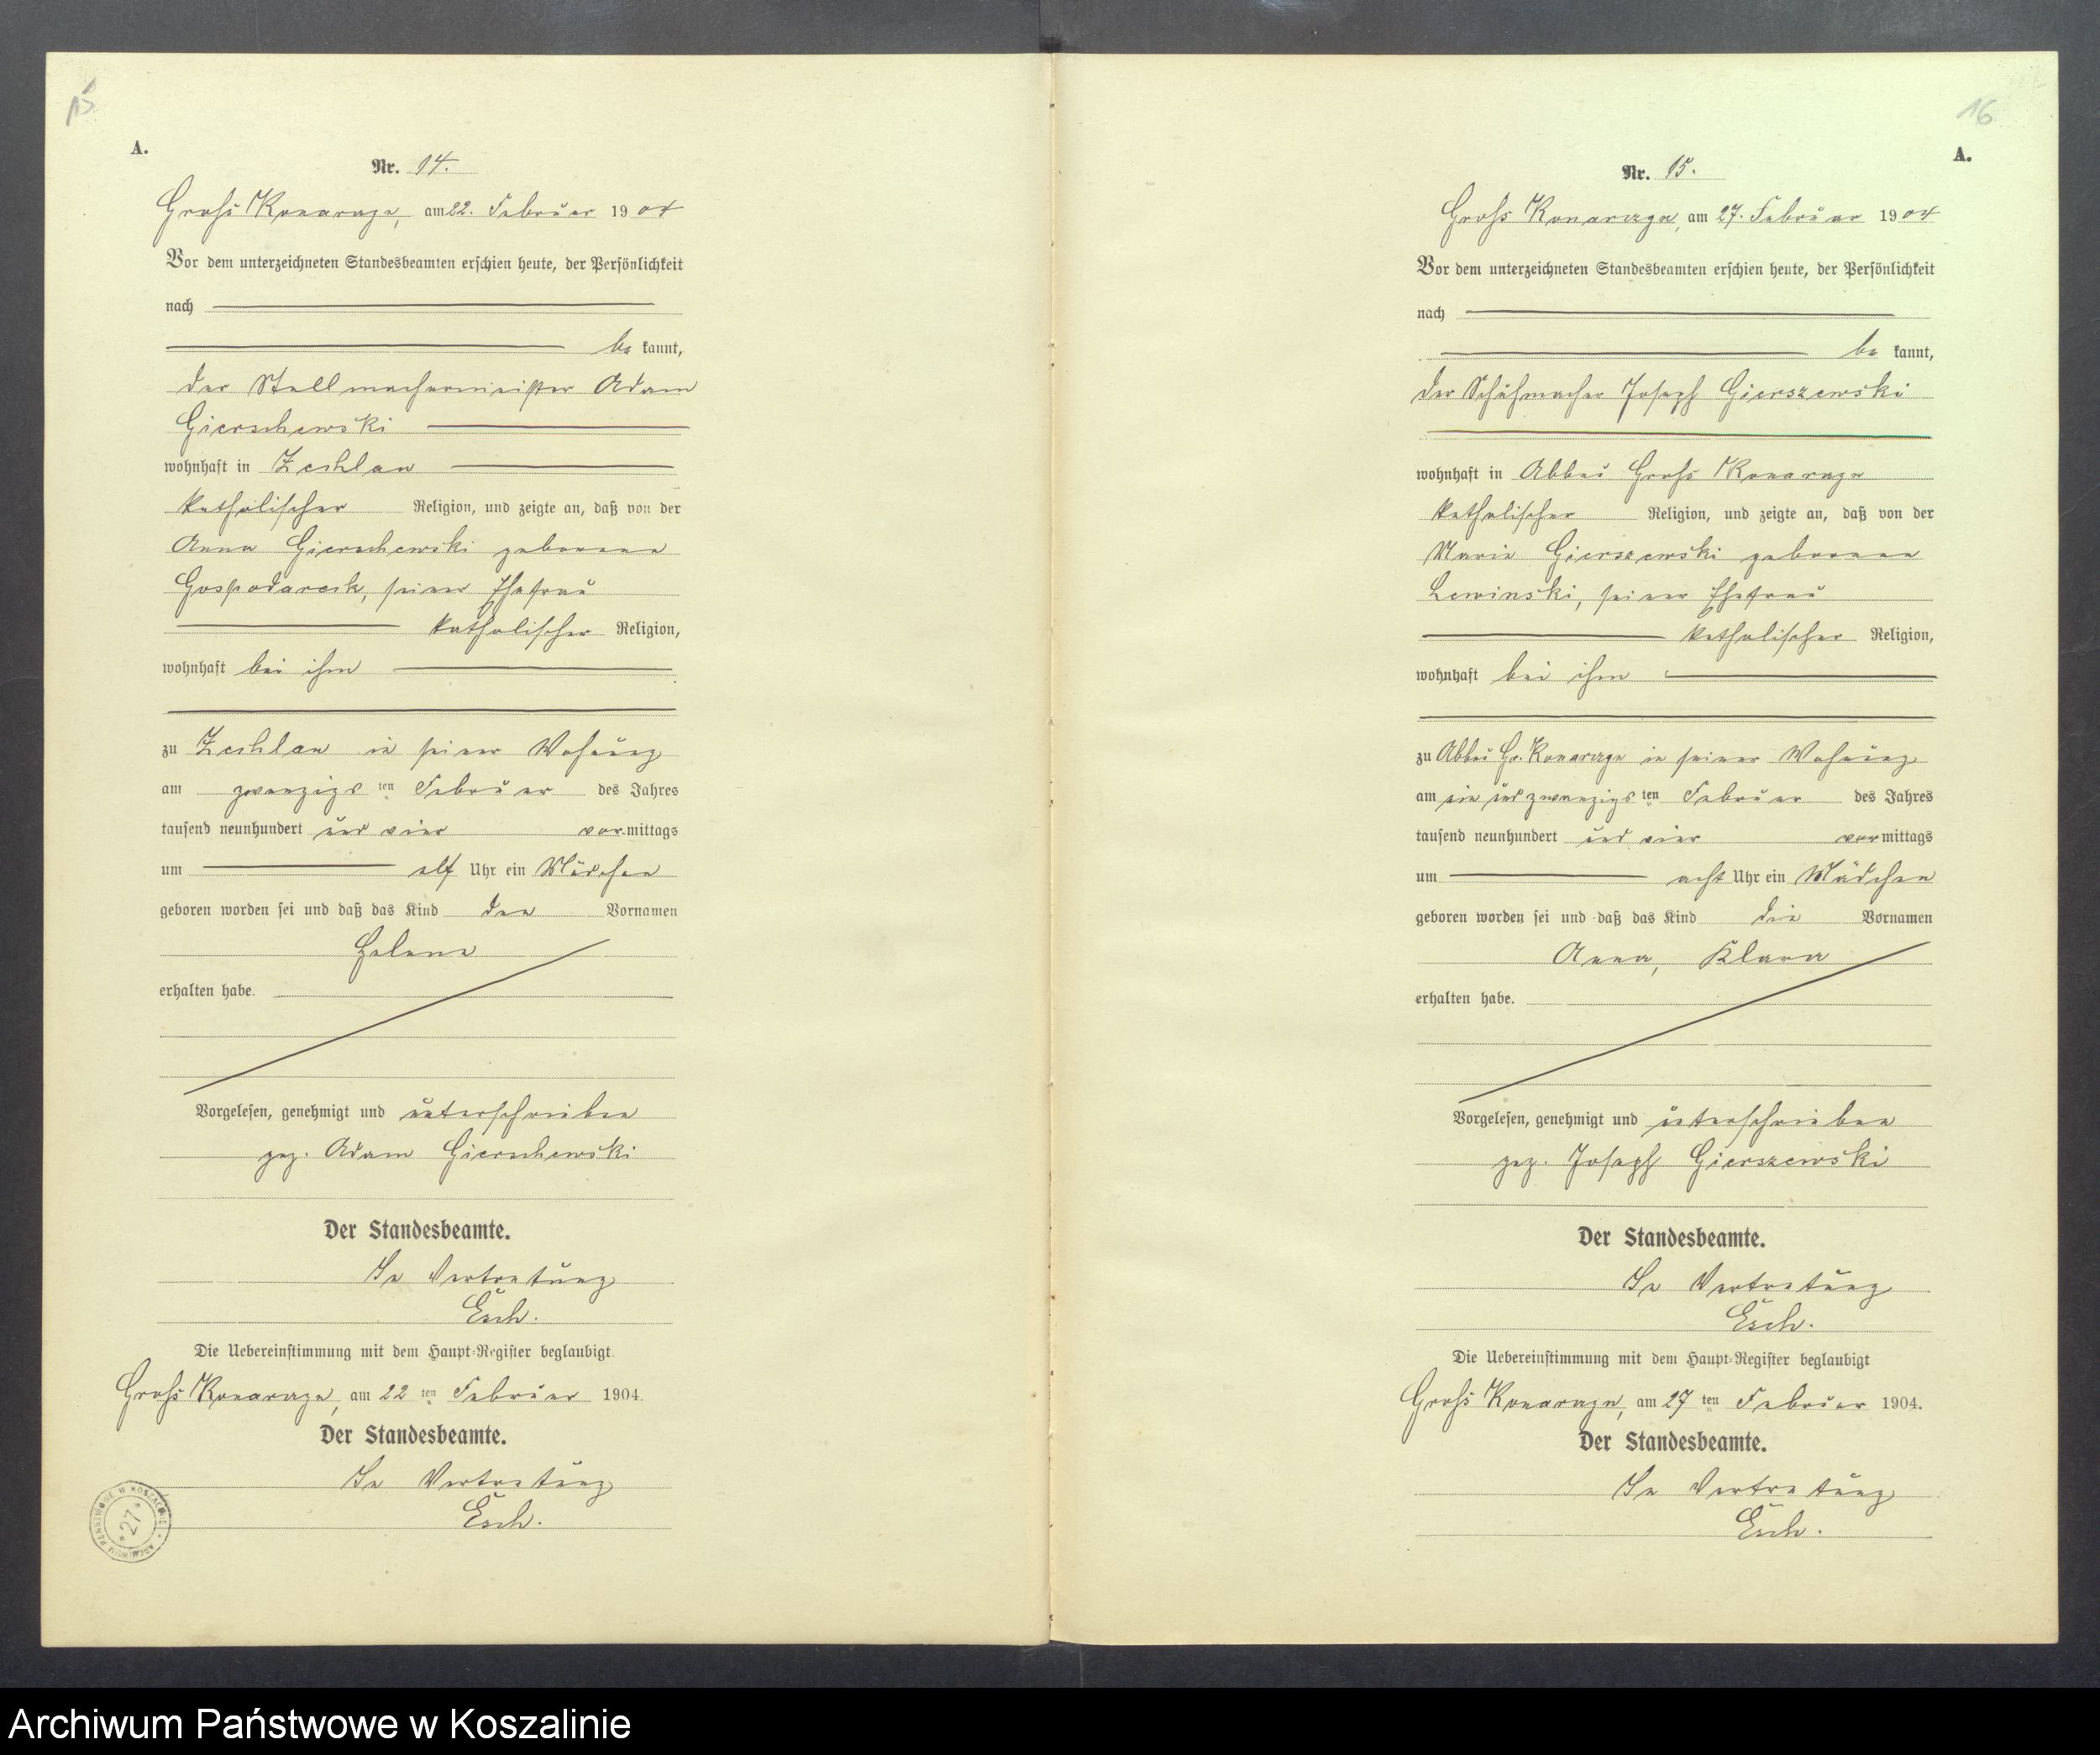 15
A.
Nr. 14.
Groß Konarzyn, am 22. Februar 1904
Vor dem unterzeichneten Standesbeamten erschien heute, der Persönlichkeit
nach
be kannt,
der Stellmachermeister Adam
Gierschewski
wohnhaft in Zechlau
katholischer Religion, und zeigte an, daß von der
Anna Gierschewski geborene
Gospodarek, seiner Ehefrau
katholischer Religion,
wohnhaft bei ihm
zu Zechlau in seiner Wohnung
am zwanzigsten Februar des Jahres
tausend neunhundert und vier vormittags
um elf Uhr ein Mädchen
geboren worden sei und daß das Kind den Vornamen
Helene
erhalten habe.
Vorgelesen, genehmigt und unterschrieben
gez. Adam Gierschewski
Der Standesbeamte.
In Vertretung
Esch.
Die Uebereinstimmung mit dem Haupt-Register beglaubigt.
Groß Konarzyn, am 22 ten Februar 1904.
Der Standesbeamte.
In Vertretung
Esch.
ARCHIWUM PAŃSTWOWE W KOSZALINIE
* 27 *
16
A.
Nr. 15.
Groß Konarzyn, am 27. Februar 1904
Vor dem unterzeichneten Standesbeamten erschien heute, der Persönlichkeit
nach
be kannt,
der Schuhmacher Joseph Gierszewski
wohnhaft in Abbau Groß Konarzyn
katholischer Religion, und zeigte an, daß von der
Marie Gierszewski geborene
Lewinski, seiner Ehefrau
katholischer Religion,
wohnhaft bei ihm
zu Abbau Gr. Konarzyn in seiner Wohnung
am ein und zwanzigsten Februar des Jahres
tausend neunhundert und vier vormittags
um acht Uhr ein Mädchen
geboren worden sei und daß das Kind die Vornamen
Anna, Klara
erhalten habe.
Vorgelesen, genehmigt und unterschrieben
gez. Joseph Gierszewski
Der Standesbeamte.
In Vertretung
Esch.
Die Uebereinstimmung mit dem Haupt-Register beglaubigt
Groß Konarzyn, am 27 ten Februar 1904.
Der Standesbeamte.
In Vertretung
Esch.
Archiwum Państwowe w Koszalinie